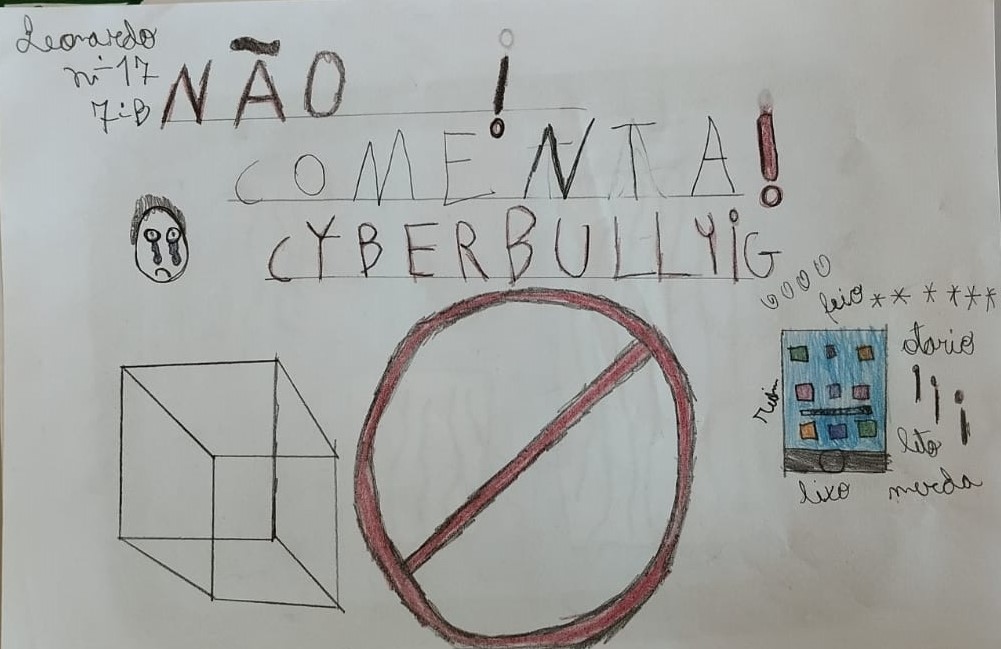 Leonardo
nº 17
7ºB
NÃO !
COMENTA!
CYBERBULLYiG
feio ******
otario
Ruim
lixo merda